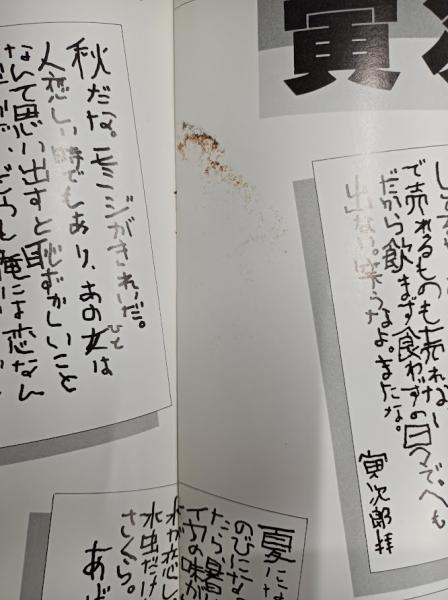 寅
で売れるものも売れない
だから飲まず食わずの日々で、へも
出ない。笑うなよ。またな。
寅次郎拝
秋だな。モミジがきれいだ。
人恋しい時でもあり、あの女は
ひと
なんて思い出すと恥ずかしいこと
俺には恋なん
夏には
のびにな
たら暑
の味が
水が恋し
水虫だけ
さくら。
あば